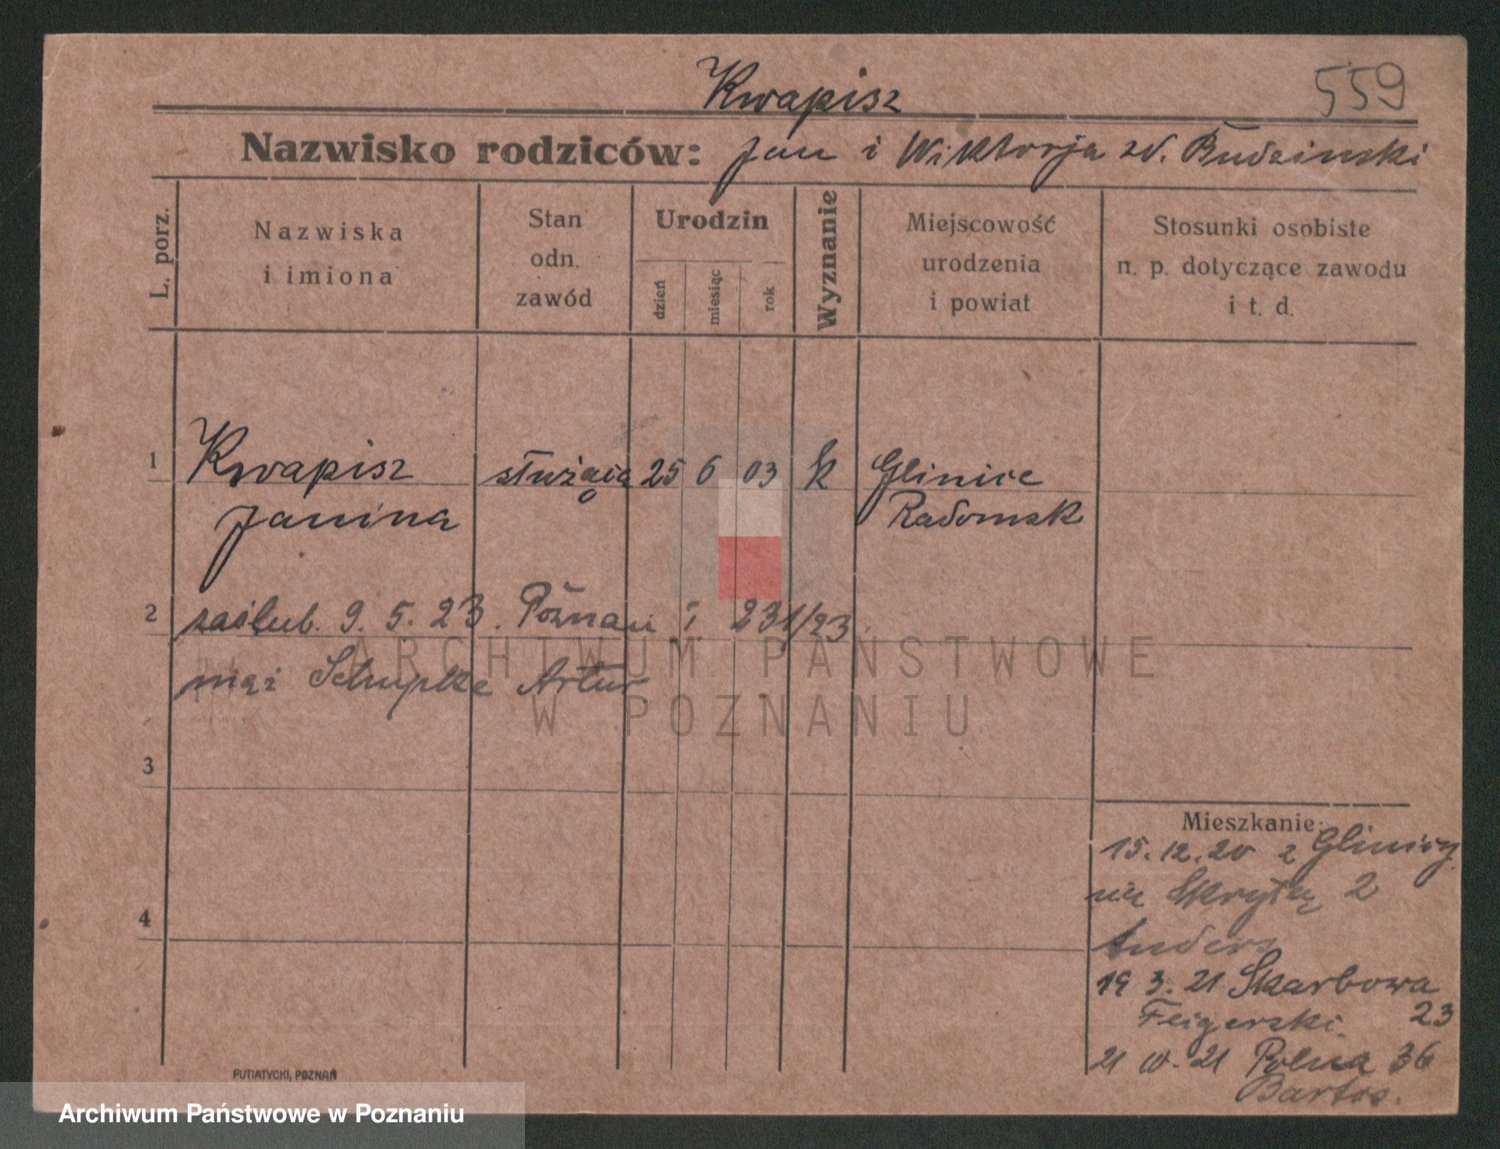 Kwapisz
559
Nazwisko rodziców: Jan i Wiktorja zd. Budzinski
L. porz.
Nazwiska
i imiona
Stan
odn.
zawód
Urodzin
dzień
miesiąc
rok
Wyznanie
Miejscowość
urodzenia
i powiat
Stosunki osobiste
n. p. dotyczące zawodu
i t. d.
1 Kwapisz służąca 25 6 03 k Glinice
Janina Radomsk
2 zaślub. 9. 5. 23. Poznań i 231/23
mąż Artur
ARCHIWUM PAŃSTWOWE
W POZNANIU
3
4
Mieszkanie:
15.12.20 z Glinicy
2
Anders
19 3. 21 Skarbowa
Feigerski 23
21 21 Polna 36
Bartos.
PUTIATYCKI, POZNAŃ
Archiwum Państwowe w Poznaniu